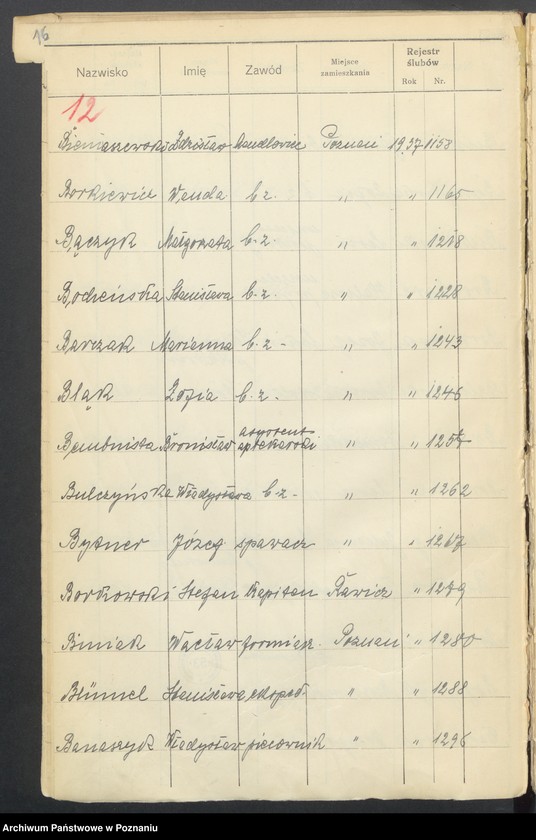 16
Nazwisko Imię Zawód Miejsce zamieszkania Rejestr ślubów Rok Nr.
12
Bieniaszewski Zdzisław handlowiec Poznań 1937 1158
Borkiewicz Wanda b. z. " " 1165
Bączyk Małgorzata b. z. " " 1218
Stanisława b. z. " " 1228
Barczak Marianna b. z. " " 1243
Bląk Zofia b. z. " " 1246
Bronisław asystent aptekarski " "
Bulczyńska Władysława b. z. " " 1262
Bytner Józef spawacz " " 1267
Borkowski Stefan Kapitan Rawicz " 1279
Biniak Wacław forniarz Poznań " 1280
Blümel Stanisława eksped. " " 1288
Banaszyk Władysław piecownik " " 1296
Archiwum Państwowe w Poznaniu